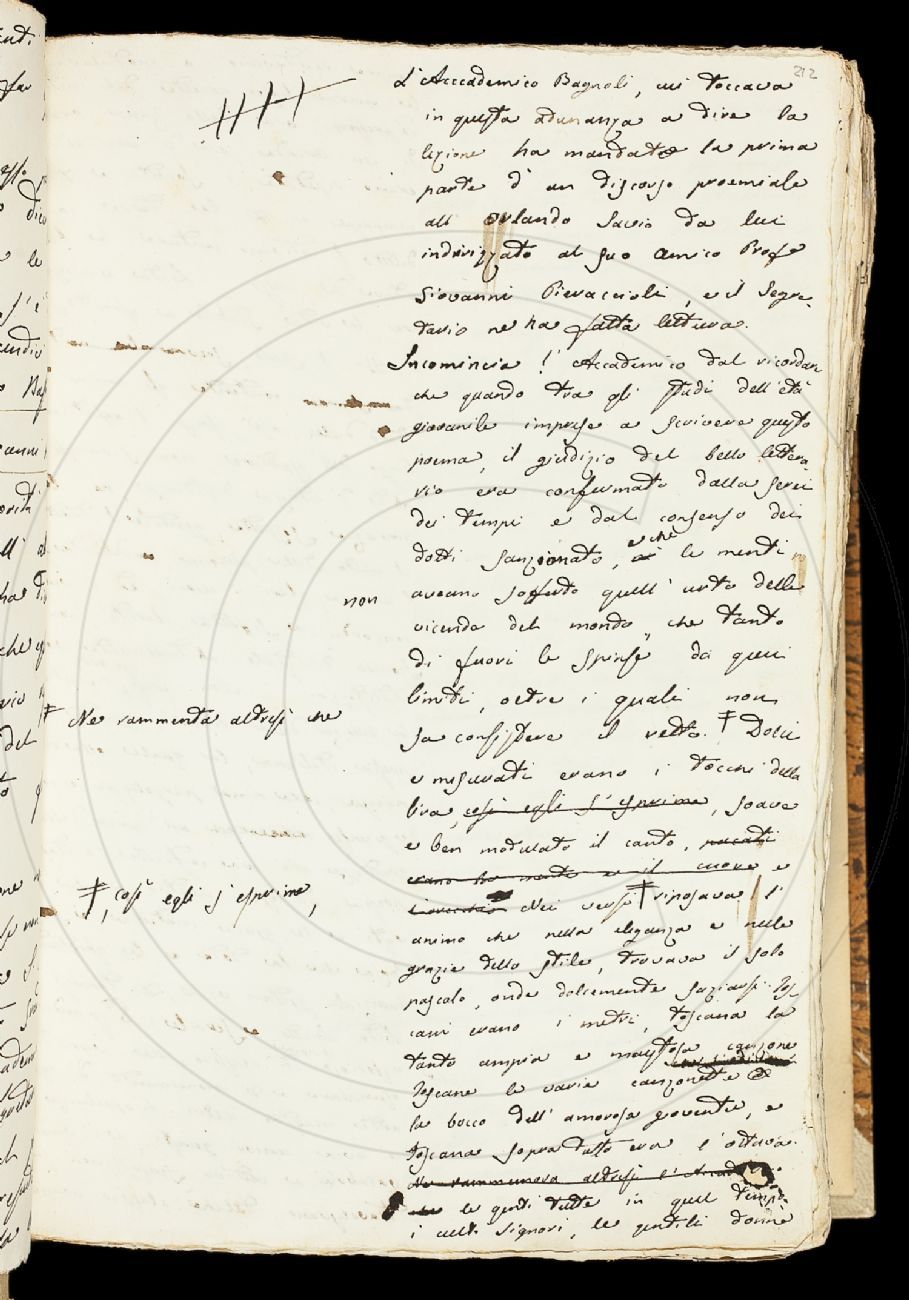 212
L'Accademico Bagnoli, cui toccava
in questa adunanza a dire la
lezione ha mandato la prima
parte d'un discorso proemiale
all' Orlando Savio da lui
indirizzato al suo amico Profe
Giovanni Pieraccioli, e il Segre-
tario ne ha fatta lettura.
Incomincia l'Accademico dal ricordare
che quando tra gli studi dell'età
giovanile imprese a scrivere questo
poema, il giudizio del bello lettera-
rio era confermato dalla serie
de' tempi e dal consenso dei
dotti sanzionato, e che le menti
non
aveano sofferto quell'urto delle
vicende del mondo, che tanto
di fuori le spinse da quei
limiti, oltre i quali non
‡ Ne rammenta altresì che
sa consistere il retto. ‡ Dolci
e misurati erano i tocchi della
lira, così egli s'esprime, soave
e ben modulato il canto, pacati
erano la mente e il cuore e
‡, così egli s'esprime,
Nei versi ‡ riposava l'
animo che nella eleganza e nelle
grazie dello stile, trovava il solo
pascolo, onde dolcemente saziarsi. Tos-
cani erano i metri, toscana la
tanto ampia e maestosa canzone
Toscane le varie canzonette
la bocca dell'amorosa gioventù, e
Toscana soprattutto era l'ottava.
Ne rammenta altresì l'Accad
le genti tutte in quel tempo
i culti Signori, le gentili donne